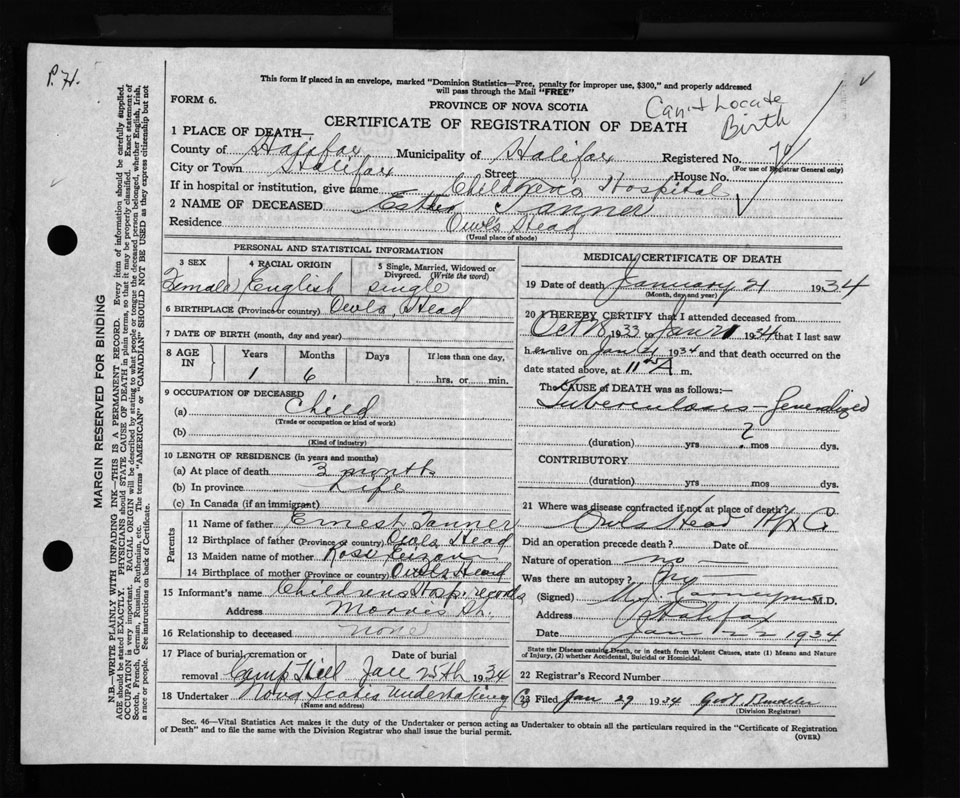 P.H.
This form if placed in an envelope, marked "Dominion Statistics—Free, penalty for improper use, $300," and properly addressed
will pass through the Mail "FREE"
FORM 6.
PROVINCE OF NOVA SCOTIA
Can't Locate
Birth
CERTIFICATE OF REGISTRATION OF DEATH
1 PLACE OF DEATH—
County of Halifax Municipality of Halifax Registered No.
(For use of Registrar General only)
City or Town Halifax Street House No.
If in hospital or institution, give name Childrens Hospital
2 NAME OF DECEASED Esther Tanner
Residence Owl's Head
(Usual place of abode)
PERSONAL AND STATISTICAL INFORMATION
3 SEX 4 RACIAL ORIGIN 5 Single, Married, Widowed or
Divorced. (Write the word)
Female English single
6 BIRTHPLACE (Province or country) Owls Head
7 DATE OF BIRTH (month, day and year)
8 AGE IN Years Months Days If less than one day,
1 6 hrs. or min.
9 OCCUPATION OF DECEASED
(a) Child
(Trade or occupation or kind of work)
(b)
(Kind of industry)
10 LENGTH OF RESIDENCE (in years and months)
(a) At place of death 3 months
(b) In province Life
(c) In Canada (if an immigrant)
Parents
11 Name of father Ernest Tanner
12 Birthplace of father (Province or country) Owls Head
13 Maiden name of mother Rose
14 Birthplace of mother (Province or country) Owl's Head
15 Informant's name Childrens Hosp. records
Address Morris St.
16 Relationship to deceased none
17 Place of burial, cremation or removal Date of burial
Camp Hill Jan 25th 1934
18 Undertaker Nova Scotia Undertaking Co
(Name and address)
MEDICAL CERTIFICATE OF DEATH
19 Date of death January 21 1934
(Month, day and year)
20 I HEREBY CERTIFY that I attended deceased from
Oct 18 1933 to Jan 21 1934 that I last saw
her alive on Jan 1934 and that death occurred on
date stated above, at 11 A m.
The CAUSE OF DEATH was as follows:—
Tuberculosis - Generalized
(duration) yrs ? mos dys.
CONTRIBUTORY
(duration) yrs. mos. dys.
21 Where was disease contracted if not at place of death?
Owls Head Hfx Co.
Did an operation precede death? Date of
Nature of operation no
Was there an autopsy? No
(Signed) M.D.
Address Halifax
Date Jan 22 1934
State the Disease causing Death, or in death from Violent Causes, state (1) Means and Nature
of Injury, (2) whether Accidental, Suicidal or Homicidal.
22 Registrar's Record Number
23 Filed Jan 29 1934
(Division Registrar)
Sec. 46—Vital Statistics Act makes it the duty of the Undertaker or person acting as Undertaker to obtain all the particulars required in the "Certificate of Registration
of Death" and to file the same with the Division Registrar who shall issue the burial permit.
(OVER)
MARGIN RESERVED FOR BINDING
N.B.—WRITE PLAINLY WITH UNFADING INK—THIS IS A PERMANENT RECORD. Every item of information should be carefully supplied.
AGE should be stated EXACTLY. PHYSICIANS should STATE CAUSE OF DEATH in plain terms, so that it may be properly classified. Exact statement of
OCCUPATION is very important. RACIAL ORIGIN will be described by stating to what people or tongue the deceased person belonged, whether English, Irish,
Scotch, French, German, Russian, Ruthenian, etc. The terms "AMERICAN" or "CANADIAN" SHOULD NOT BE USED as they express citizenship but not
a race or people. See instructions on back of Certificate.